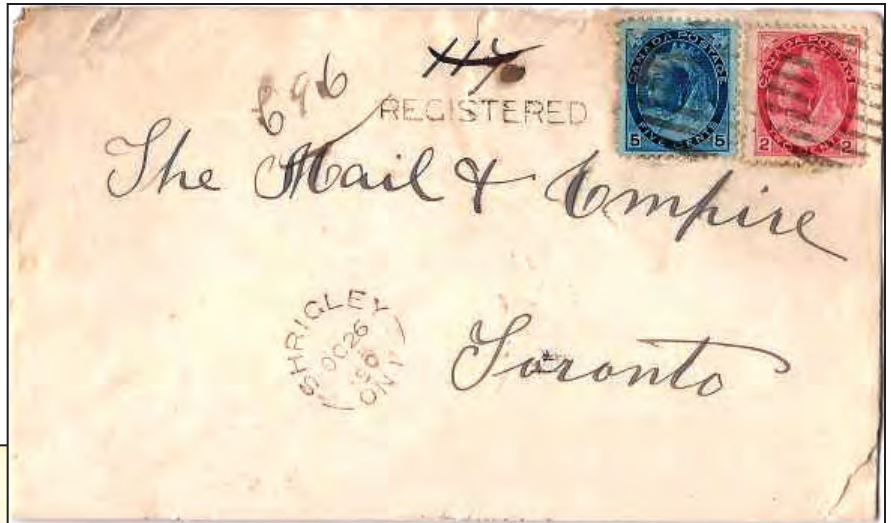 696
117
REGISTERED
CANADA POSTAGE
FIVE CENTS
5 5
CANADA POSTAGE
TWO CENTS
2 2
The Mail & Empire
Toronto
SHRIGLEY
OC 26
ONT